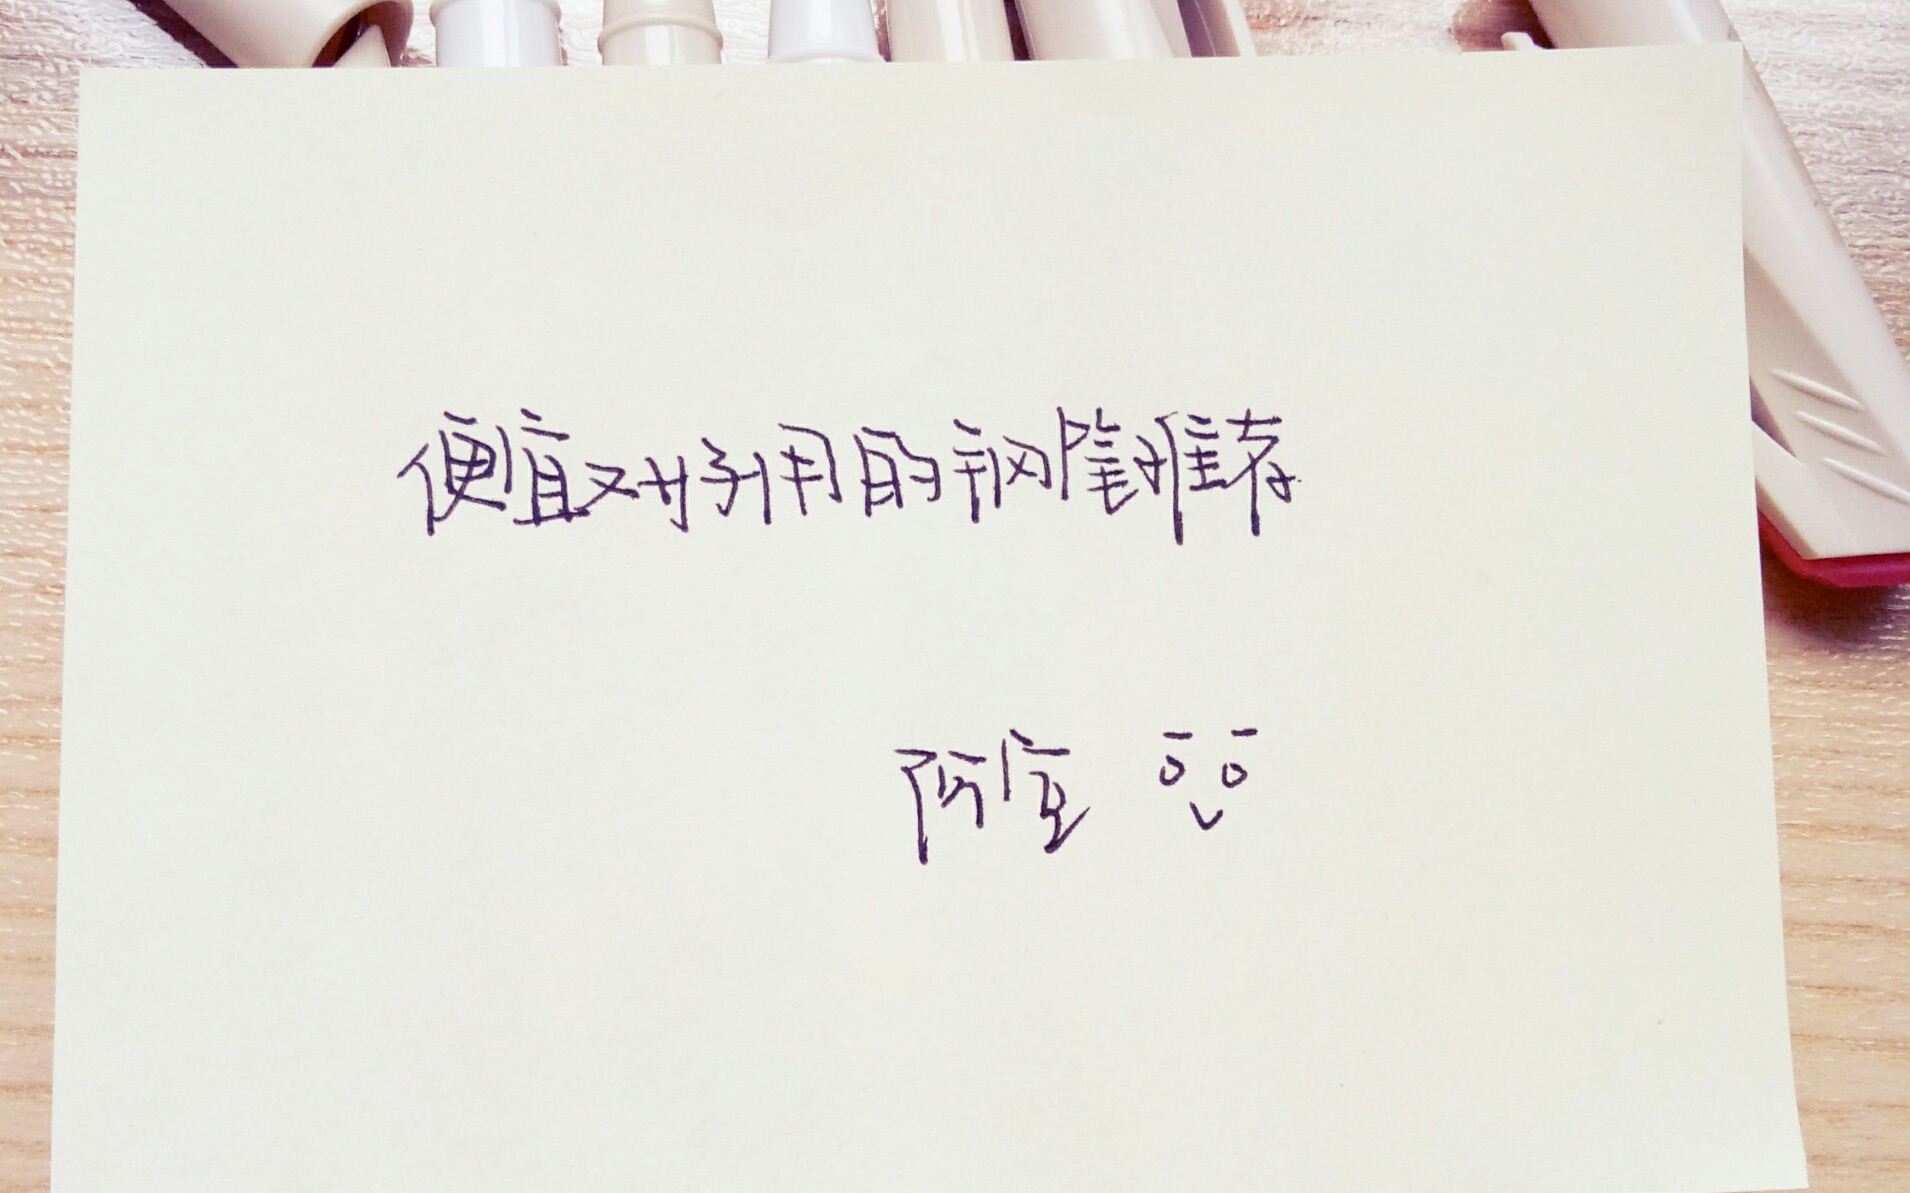 便宜又好用的钢笔推荐
阿宝